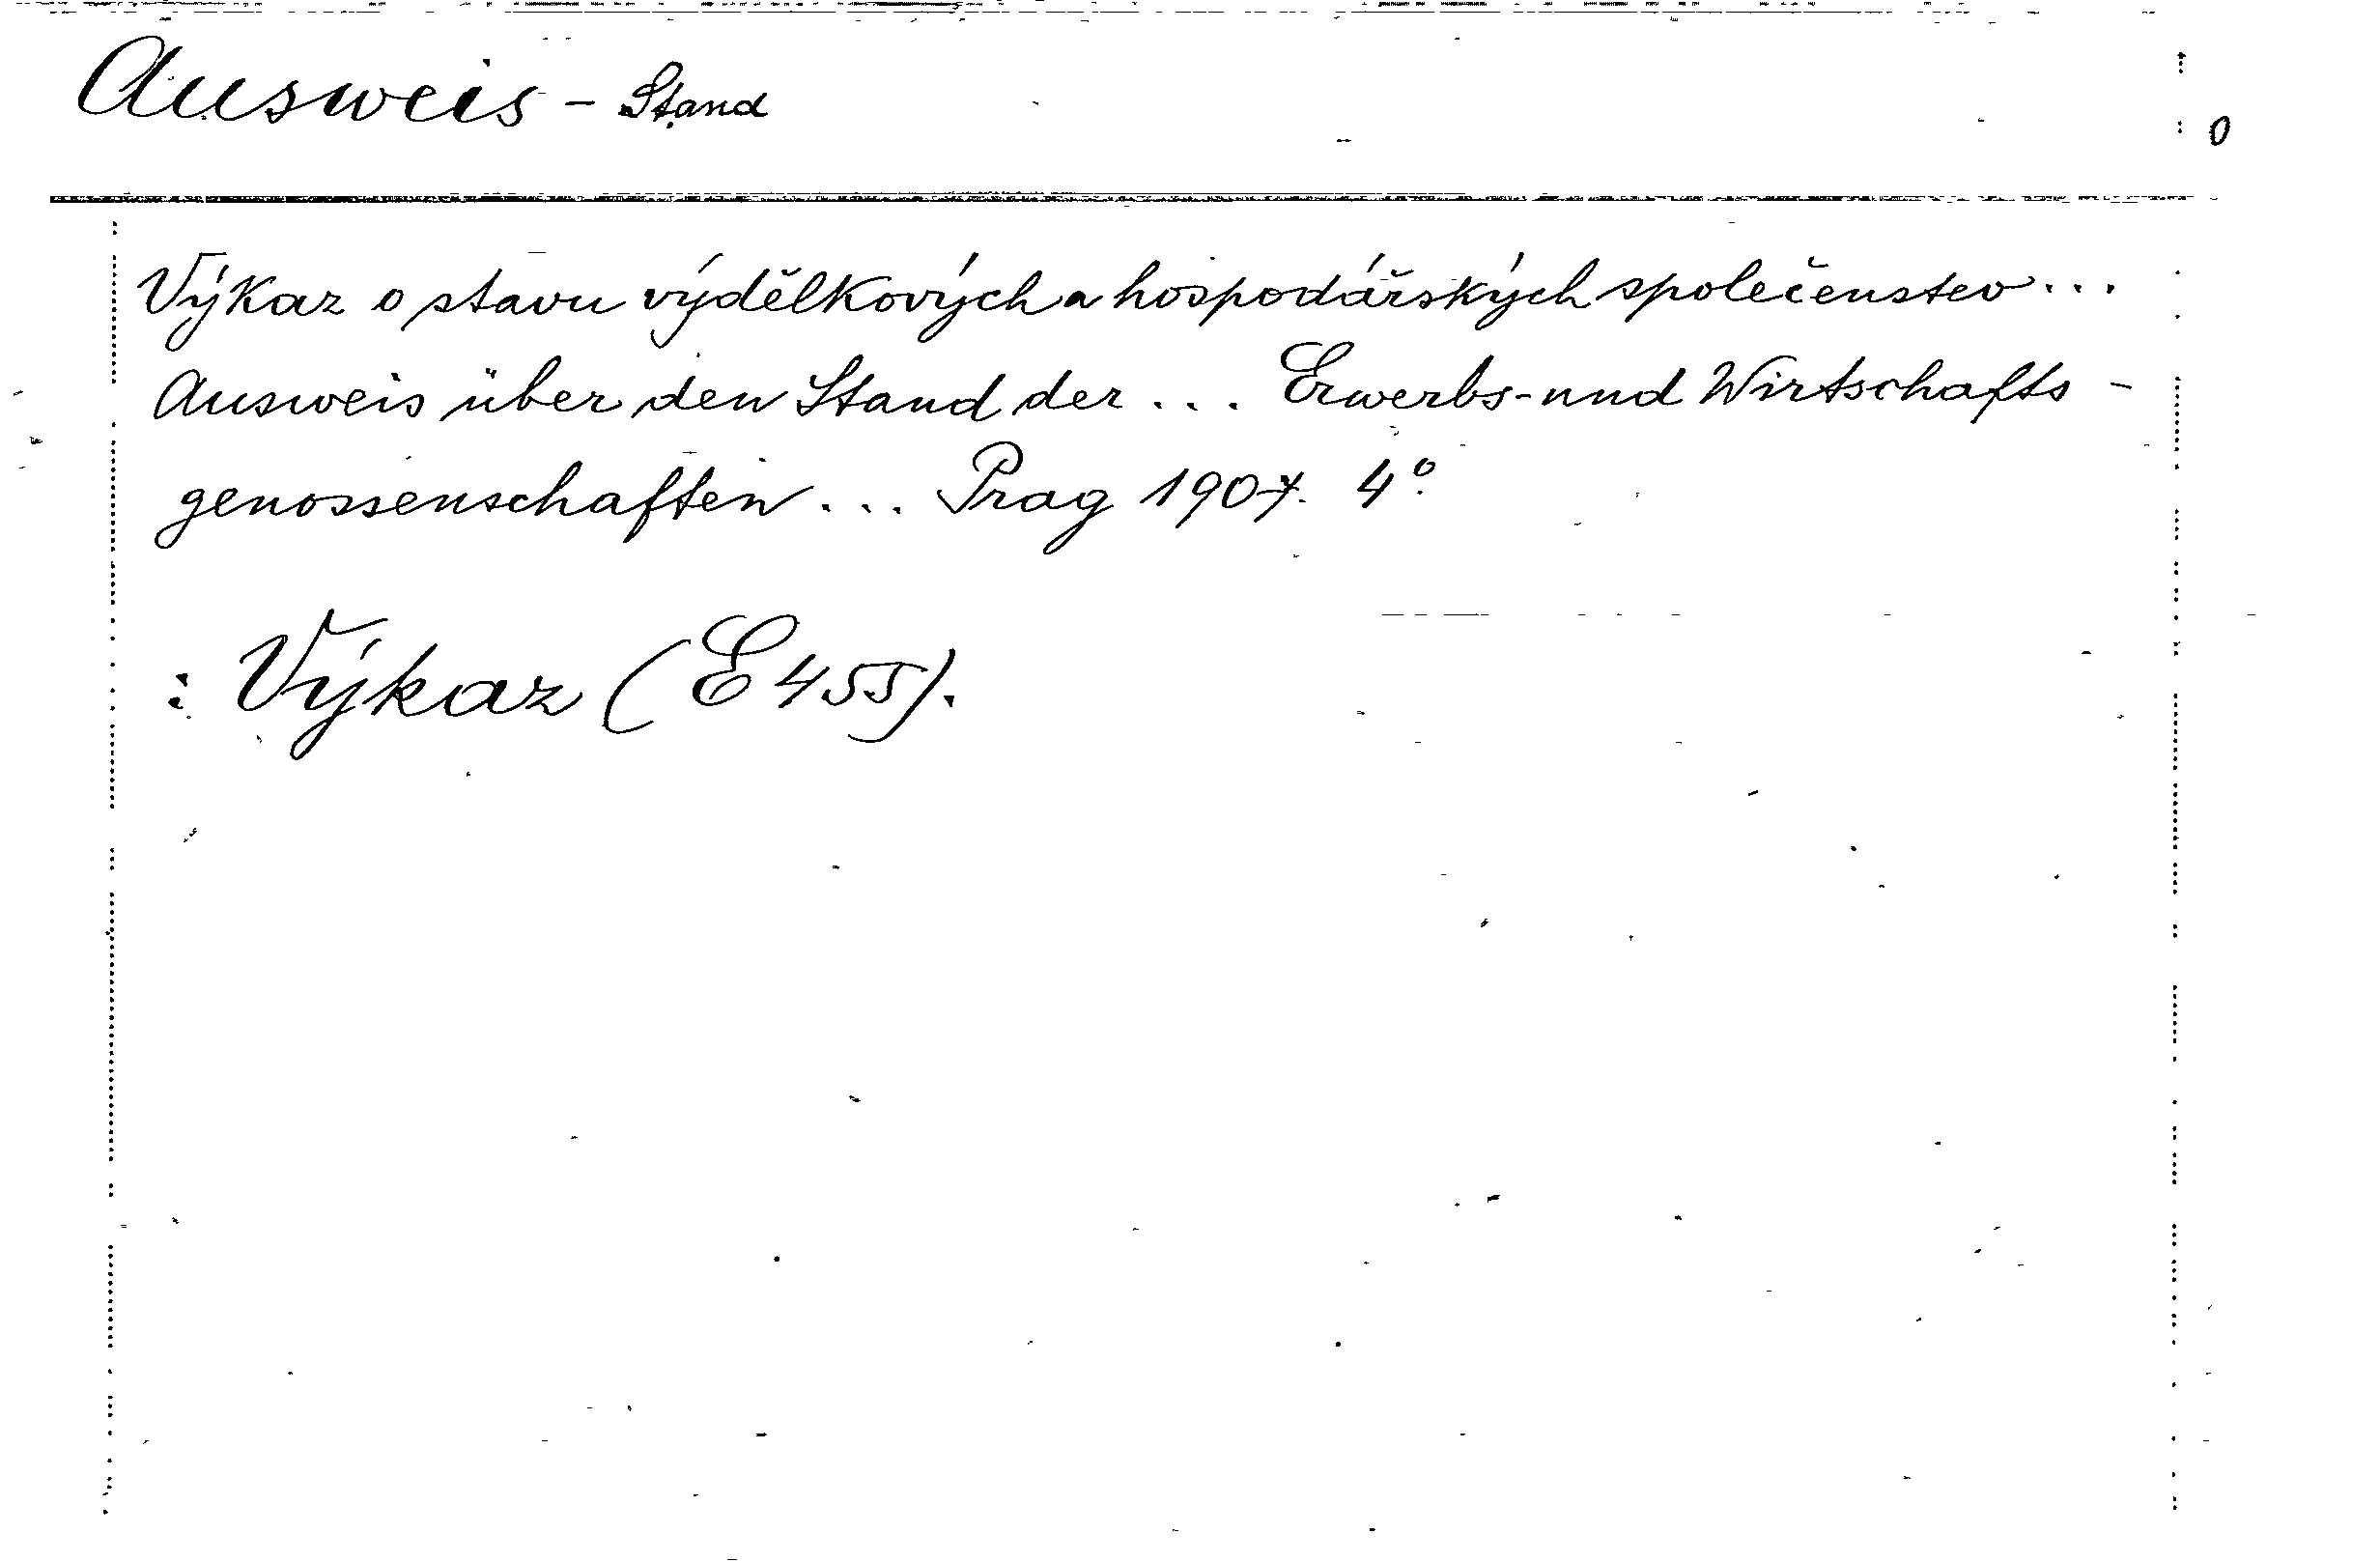 Ausweis - Stand
0
Výkaz o stavu výdělkových a hospodářských společenstev...
Ausweis über den Stand der ... Erwerbs- und Wirtschafts-
genossenschaften ... Prag 1907. 4°.
: Výkaz (E 455).